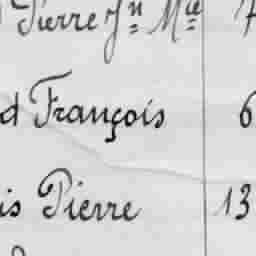 Pierre Jn Mie 7
d François 6
is Pierre 13